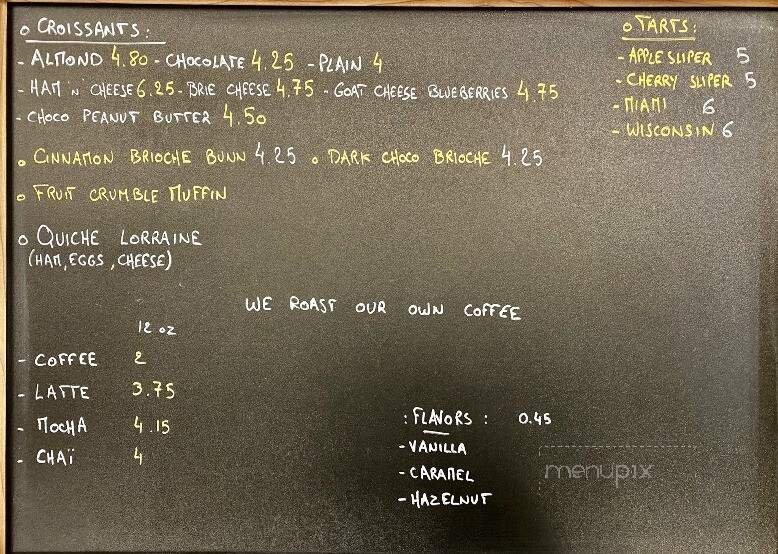 o CROISSANTS:
- ALMOND 4.80 - CHOCOLATE 4.25 - PLAIN 4
- HAM 'N' CHEESE 6.25 - BRIE CHEESE 4.75 - GOAT CHEESE BLUEBERRIES 4.75
- CHOCO PEANUT BUTTER 4.50
o CINNAMON BRIOCHE BUNN 4.25 o DARK CHOCO BRIOCHE 4.25
o FRUIT CRUMBLE MUFFIN
o QUICHE LORRAINE
(HAM, EGGS, CHEESE)
o TARTS:
- APPLE SLIPER 5
- CHERRY SLIPER 5
- MIAMI 6
- WISCONSIN 6
WE ROAST OUR OWN COFFEE
12 oz
- COFFEE 2
- LATTE 3.75
- MOCHA 4.15
- CHAÏ 4
: FLAVORS : 0.45
- VANILLA
- CARAMEL
- HAZELNUT
menupix